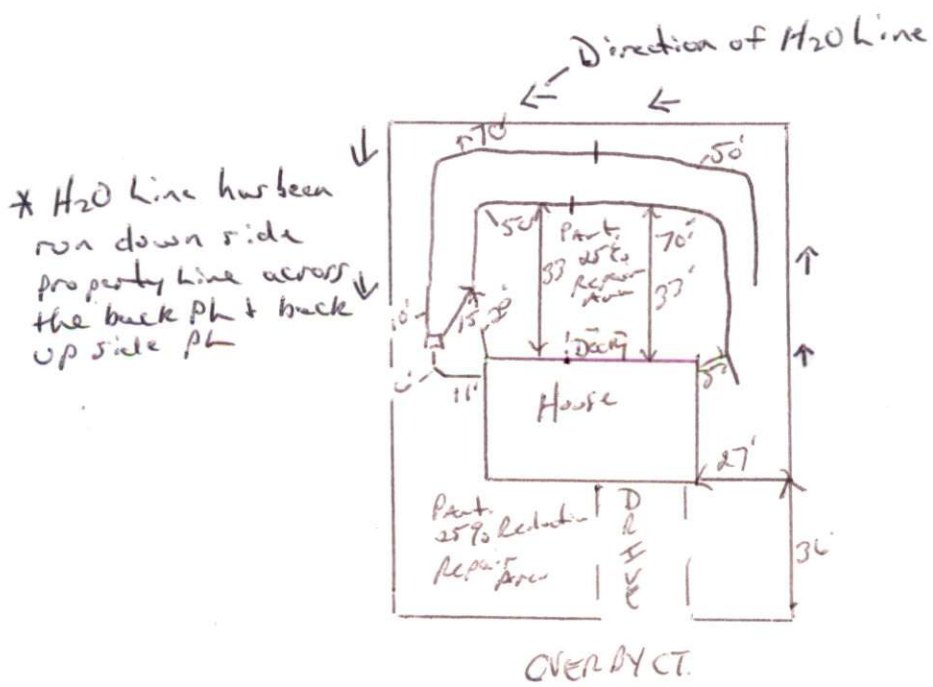 Direction of H2O Line
* H2O Line has been
run down side
property Line across
the back PL + back
up side PL
70'
50'
50'
Part.
25%
Repair
Area
70'
33
33'
15'
10'
11'
Deck
House
27'
Part.
25% Reduction
Repair
Area
DRIVE
OVERBY CT.